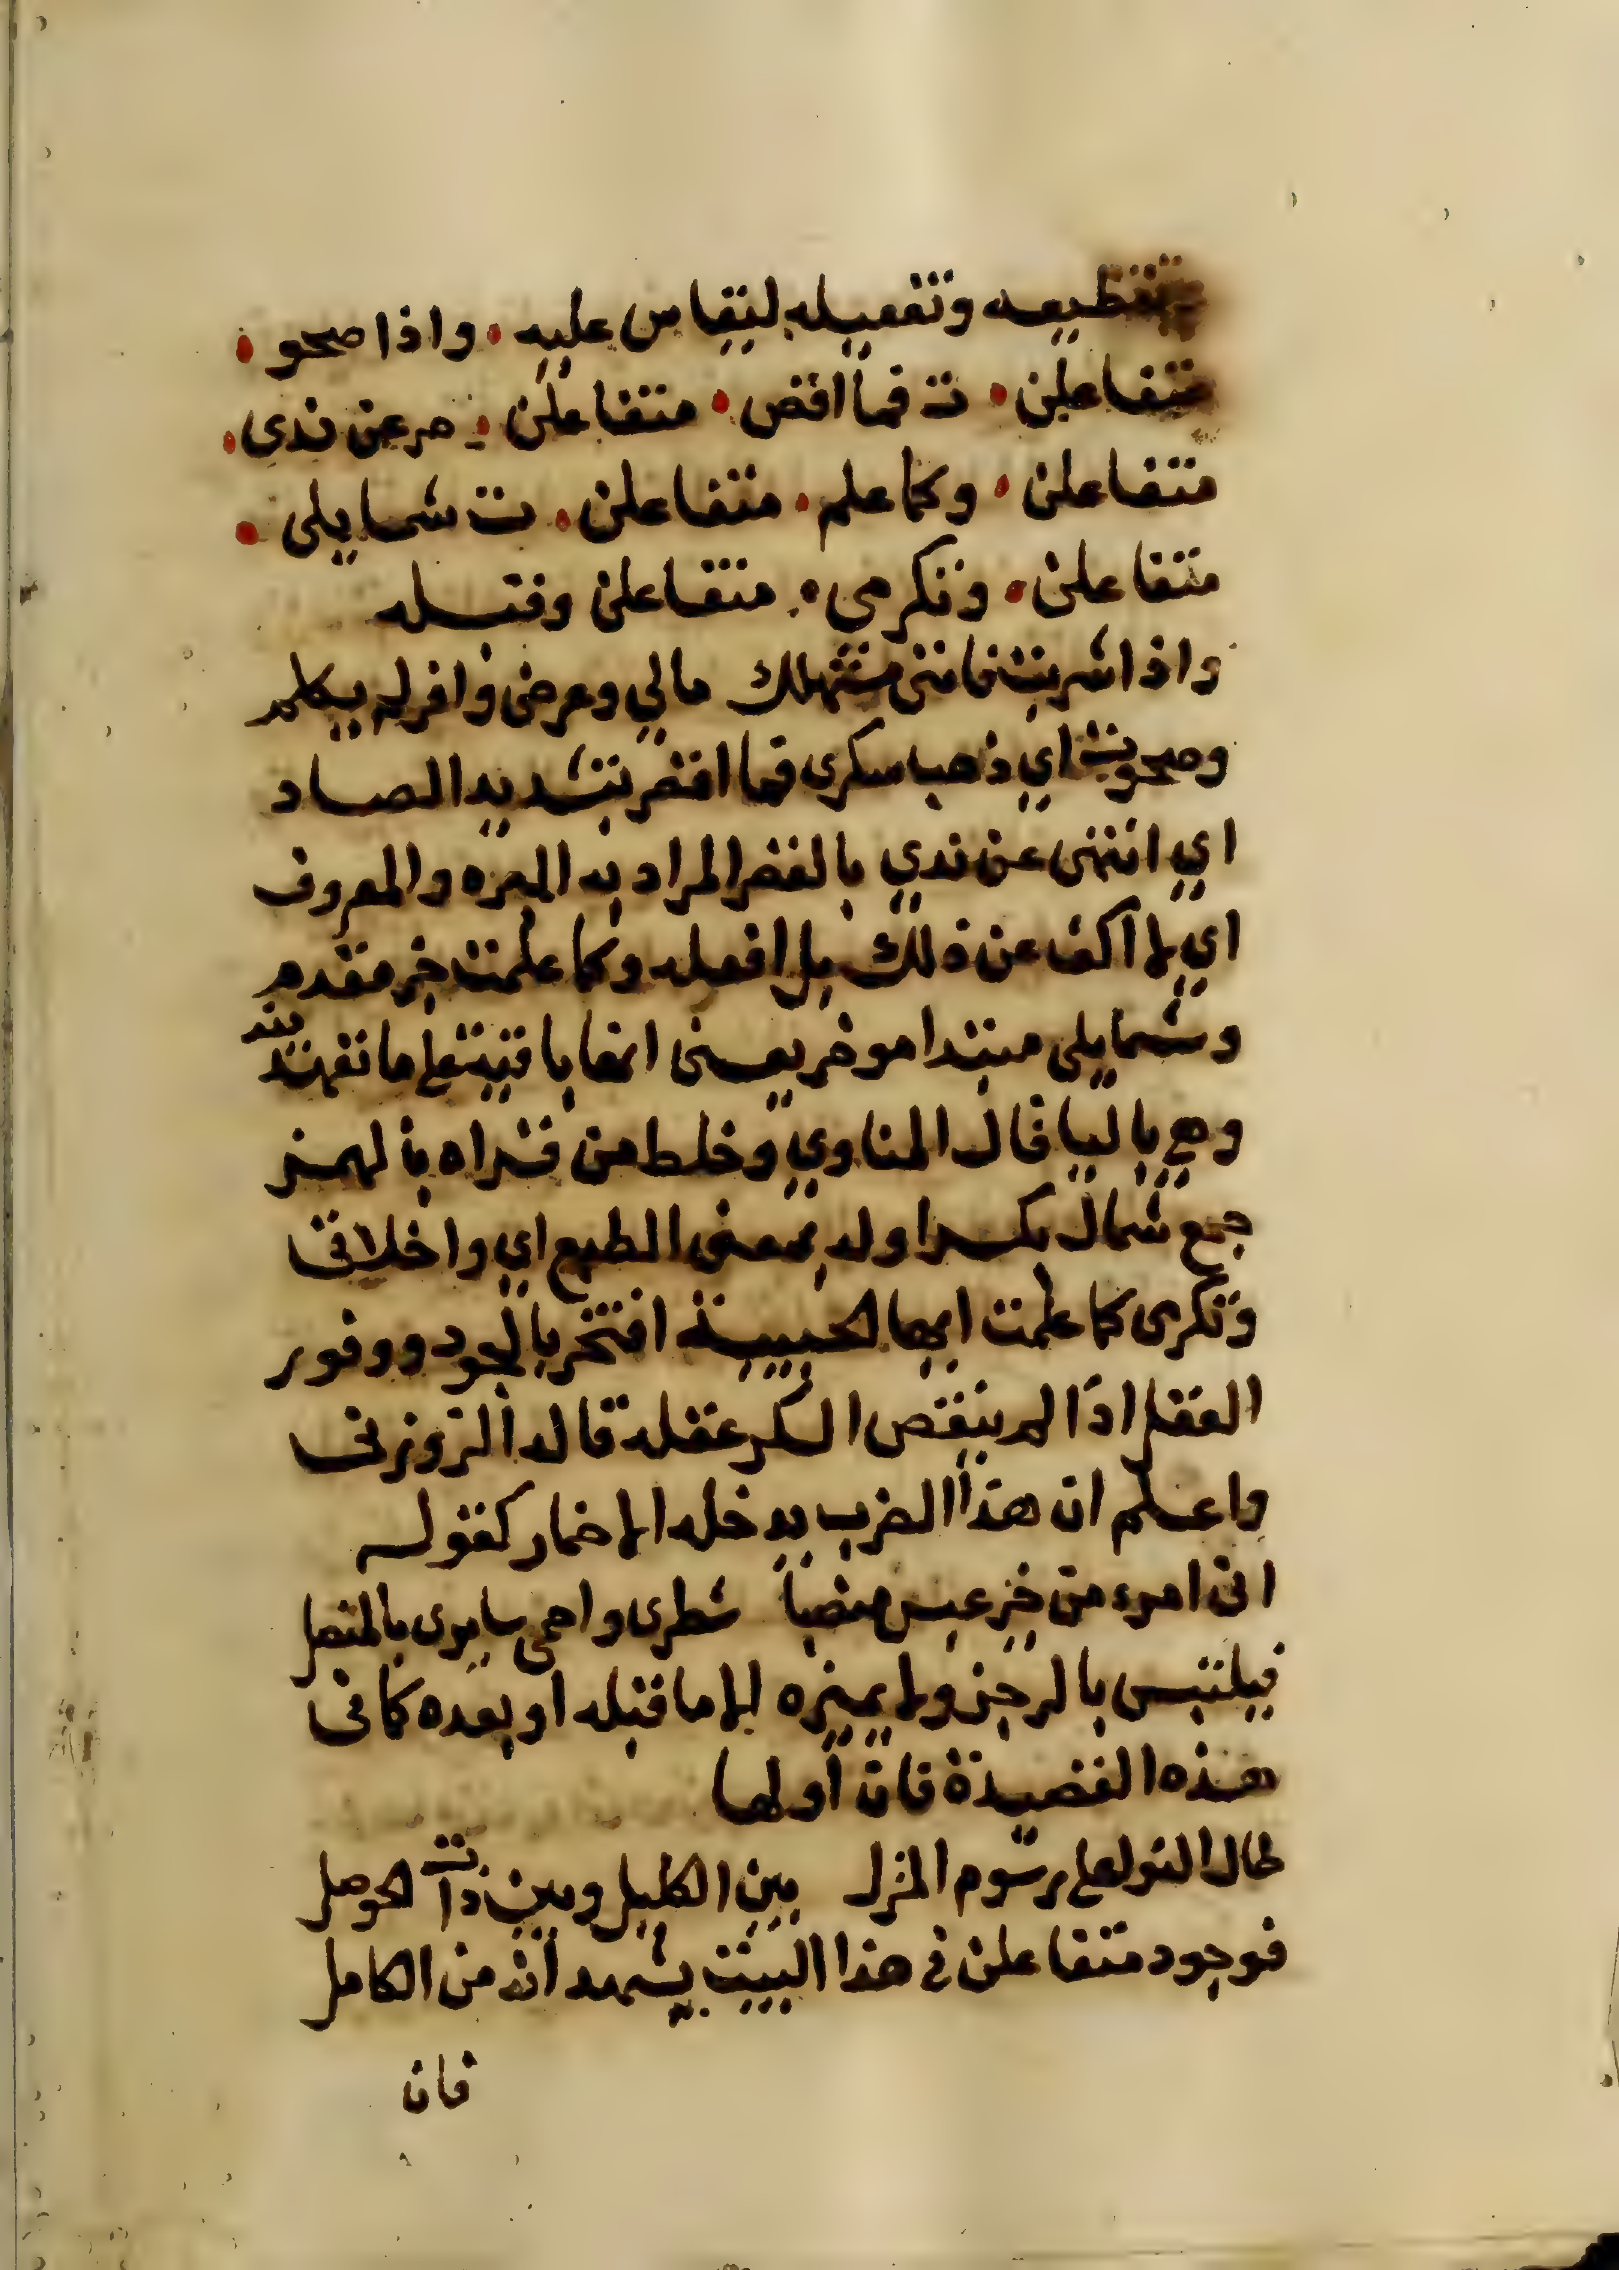 تقطيعه وتفعيله ليقاس عليه • واذا صحو •
متفاعلن • ت فما اقص • متفاعلن • صر عن ندى •
متفاعلن • وكما علم • متفاعلن • ت شمايلى •
متفاعلن • وتكرمى • متفاعلن وقبله
واذا شربت فانني مستهلك مالي وعرضى وافر لم يكلم
وصحوت اي ذهب سكرى فما اقصر بتشديد الصاد
اي انتهى عن ندي بالقصر المراد به المبره والمعروف
اي لا اكف عن ذلك بل افعله وكما علمت خبر مقدم
وشمايلى مبتدا موخر يعنى انها باقية على ما تعهدينه
وهي باليا قال المناوي وخلط من قراه بالهمز
جمع شمال بكسر اوله بمعنى الطبع اي واخلاقى
وتكرمى كما علمت ايها الحبيبة افتخر بالجود ووفور
العقل اذا لم ينقص السكر عقله قاله الزوزنى
واعلم ان هذا الضرب يدخله الاضمار كقوله
انى امرء من خير عبس منصبا شطرى واحمى سايرى بالمنصل
فيلتبس بالرجز ولا يميزه الا ما قبله او بعده كما فى
هذه القصيدة فان اولها
طال الثوا على رسوم المنزل بين الكليل وبين ذات الحومل
فوجود متفاعلن فى هذا البيت يشهد انه من الكامل
فان